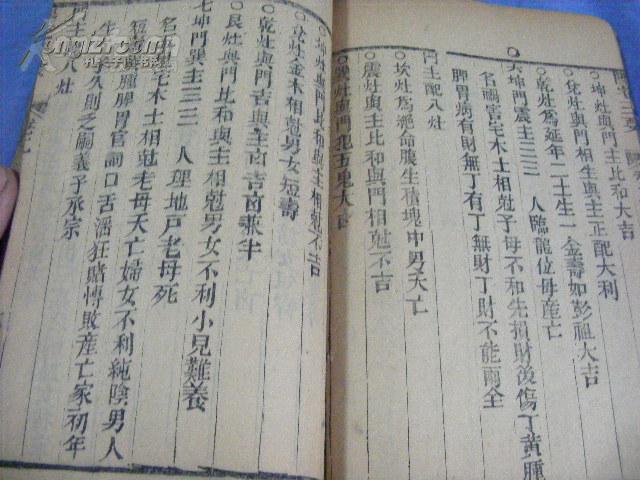 陽宅三要
○坤灶與門主比和大吉
○兌灶與門相生與主正配大利
○乾灶爲延年二土生一金壽如彭祖大吉
六坤門震主三三 人臨龍位母産亡
名禍害宅木土相尅子母不和先損財後傷丁黃腫
脾胃病有財無丁有丁無財丁財不能兩全
門主配八灶
○坎灶爲絶命腹生積塊中男夭亡
○震灶與主比和與門相尅不吉
○巽灶與門犯五鬼大吉
○坤灶與門比和與主相尅不吉
○兌灶金木相尅男女短壽
○乾灶與門吉與主凶吉凶兼半
○艮灶與門比和與主相尅男女不利小兒難養
七坤門巽主三三 人埋地戸老母死
名五鬼宅木土相尅老母夭亡婦女不利純陰男人
短 腫脾胃官詞口舌潘狂賭愽敗産亡家初年
生 久則乏嗣義子承宗
門主 八灶